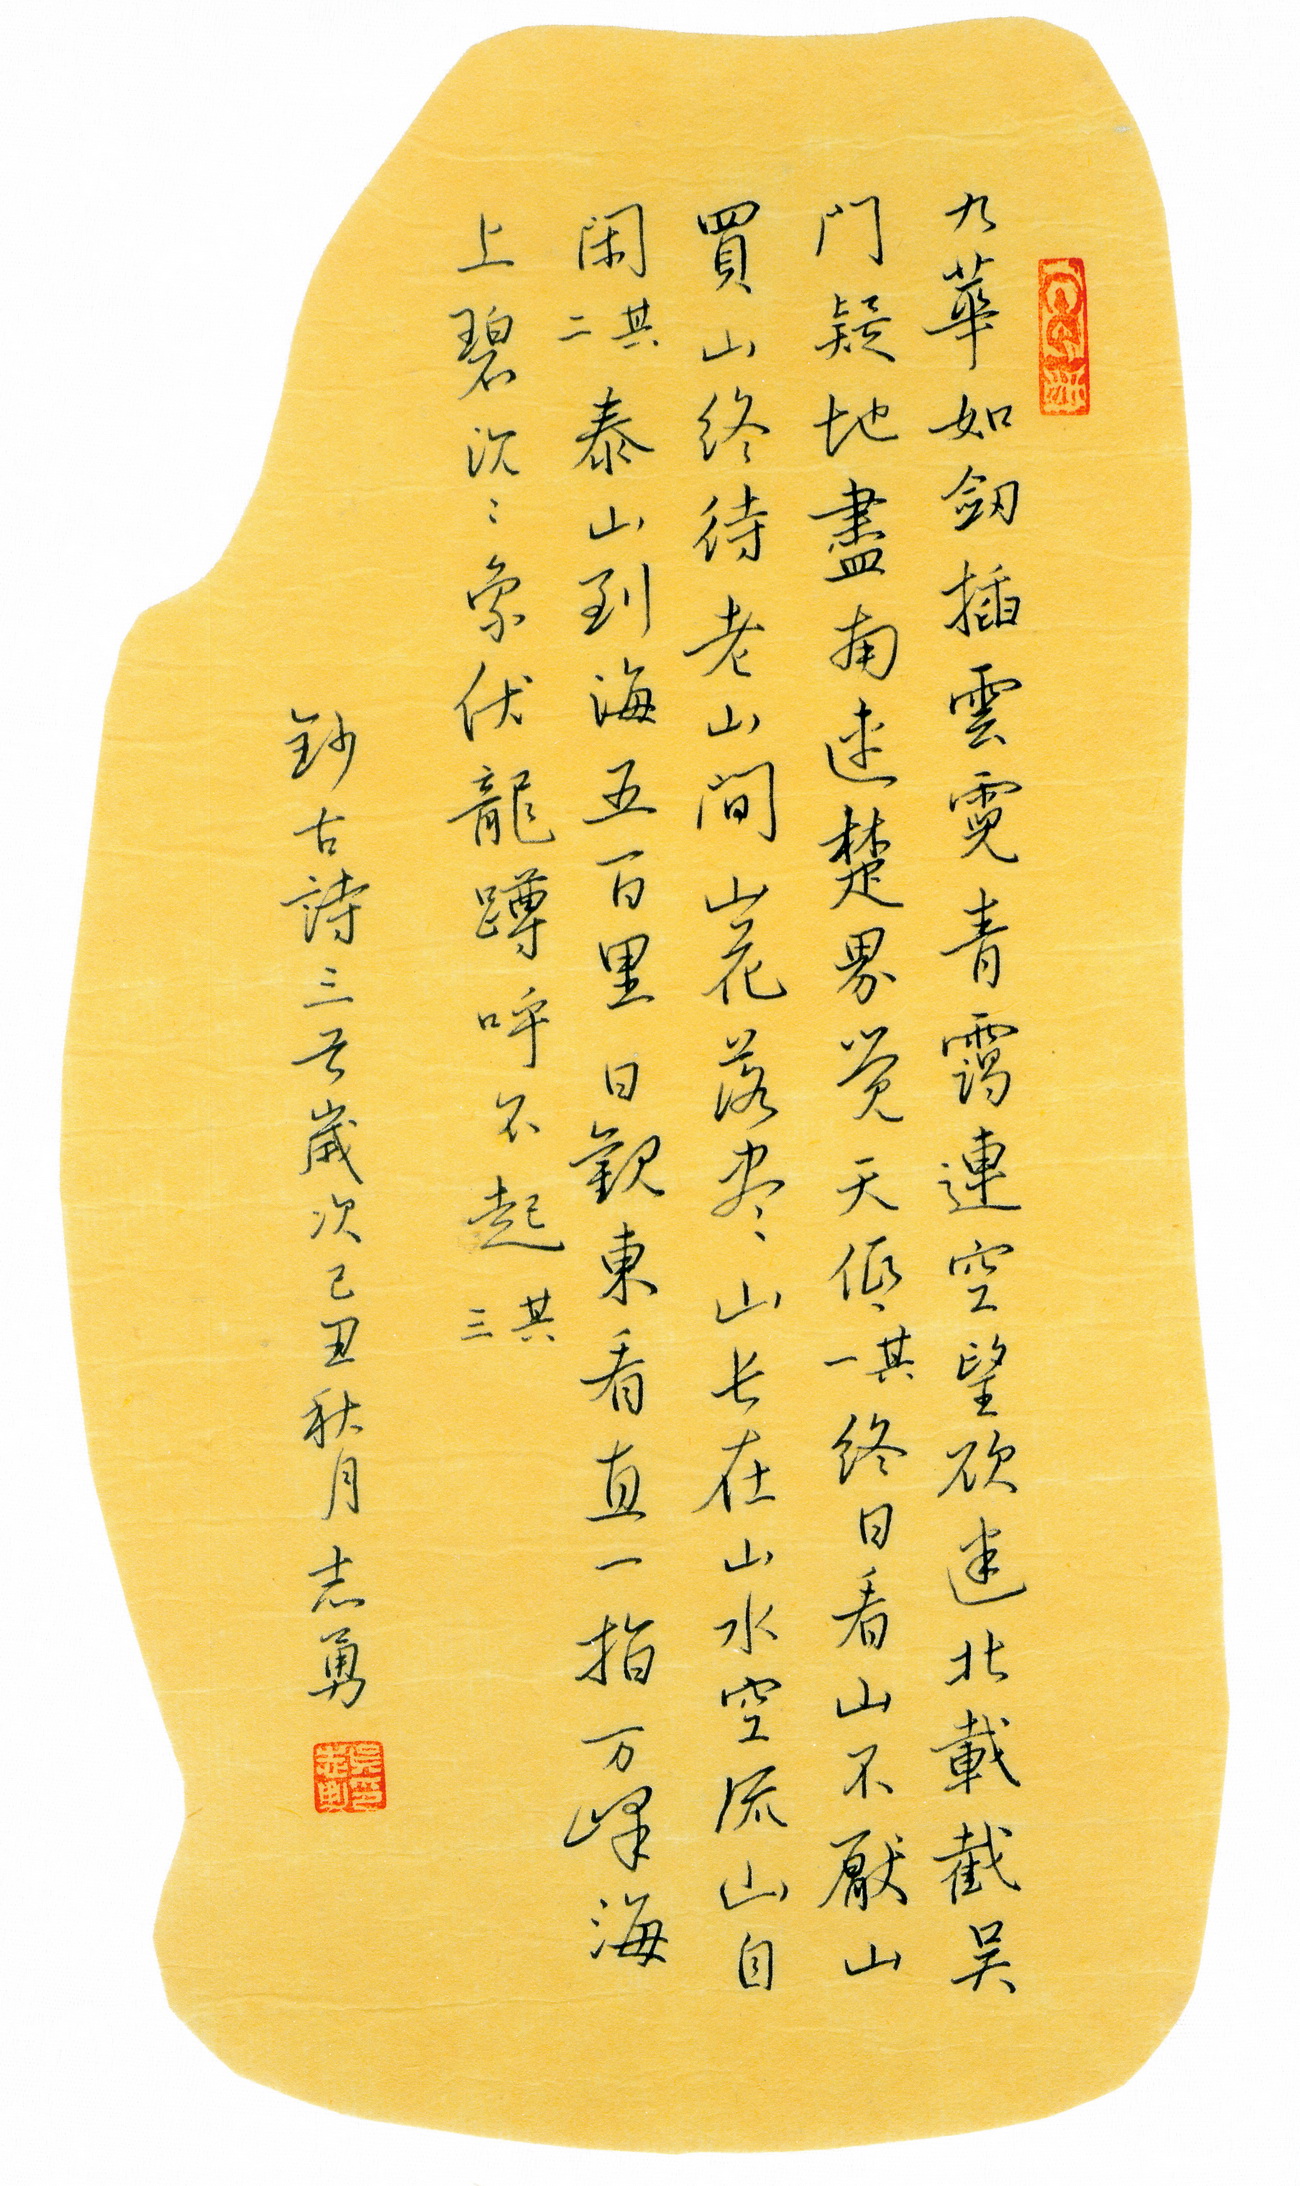 九華如劒插雲霓青靄連空望欲迷北載截吴
門疑地盡南連楚界覺天低其一終日看山不厭山
買山終待老山間山花落尽山長在山水空流山自
閑其二泰山到海五百里日觀東看直一指万峰海
上碧沉〻象伏龍蹲呼不起其三
鈔古詩三首歲次己丑秋月志勇